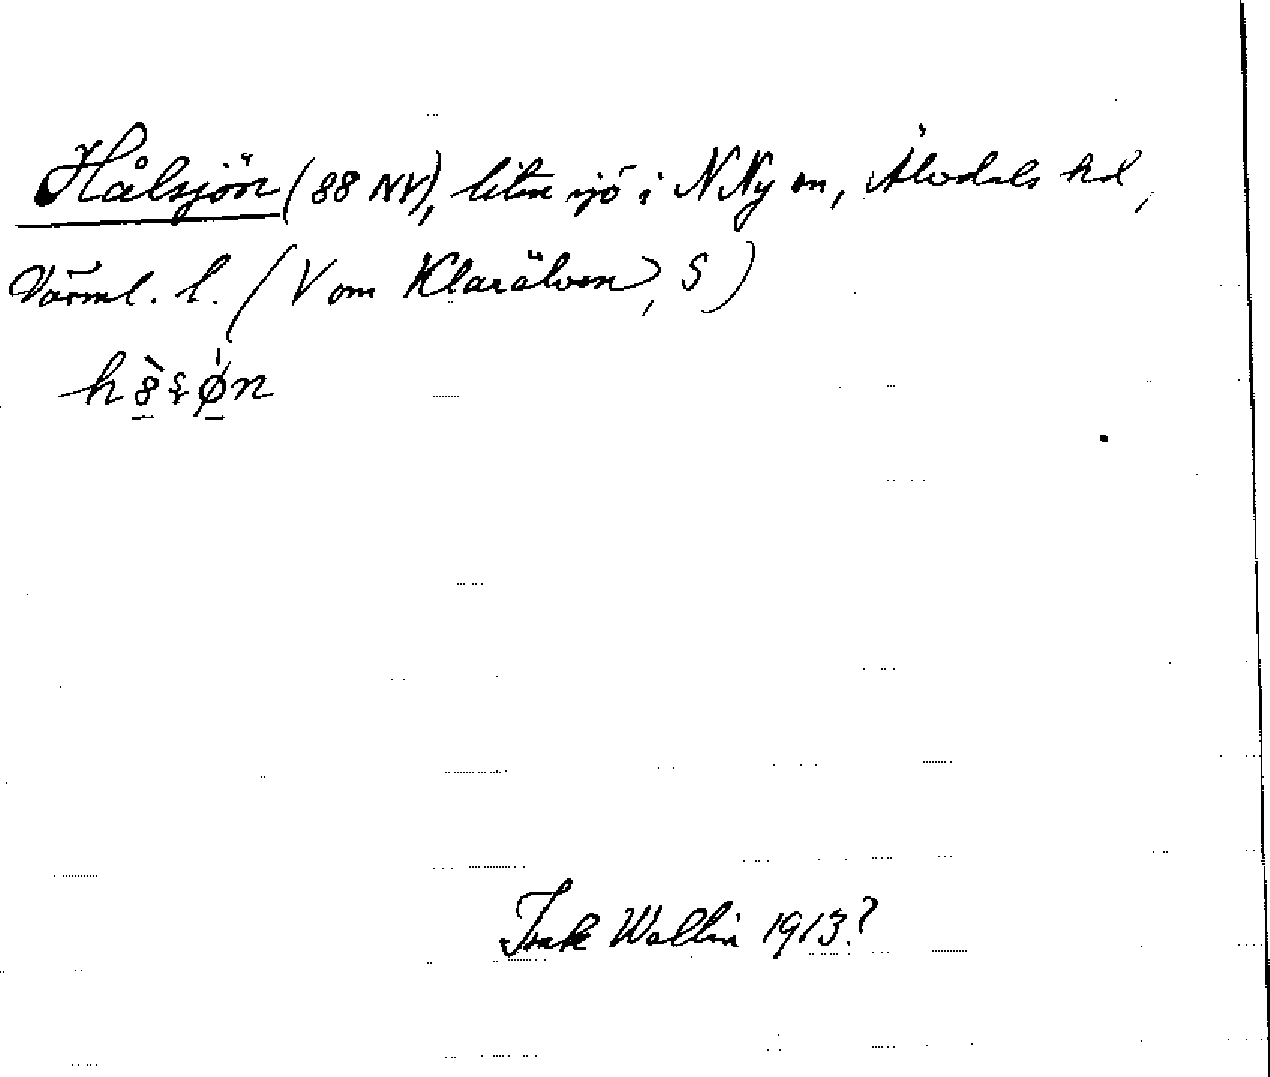 Hålsjön (88 NV), liten sjö i N Ny sn, Älvdals hd,
Värml. l. (V om Klarälven, S)
Isak Wallin 1913?